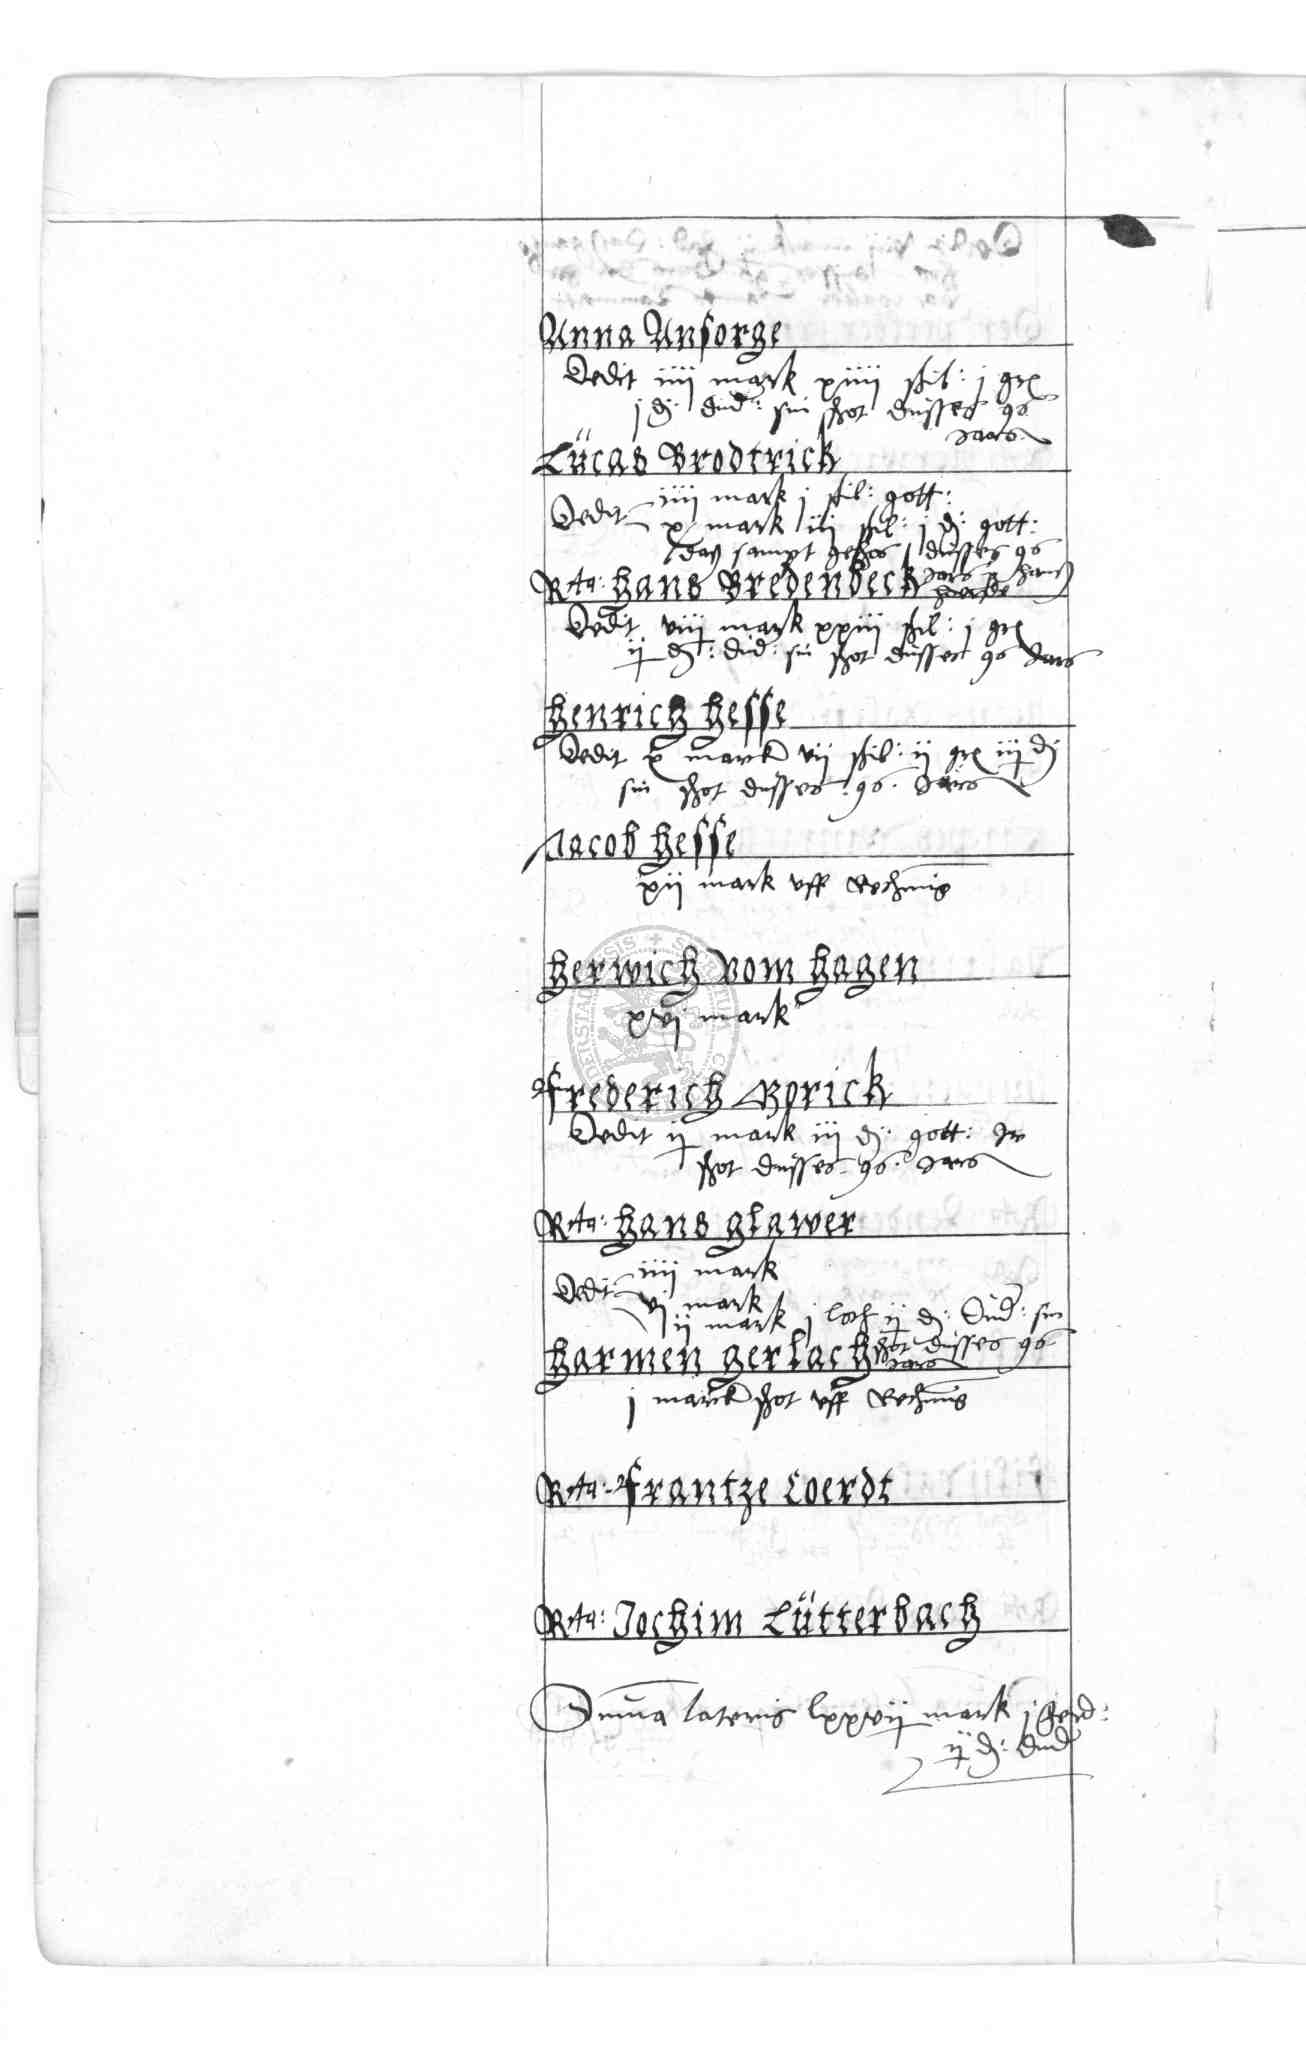 Anna Ansorge
Dedit iiii mark xiiii schil: j gr
j d: dud: sin schot dusses 96
Jars
Lücas Brodtrick
Dedit iiii mark j schil: gott:
x mark iij schil: j d: gott:
sampt dusses 96
Jars
Rta: Hans Bredenbeck
Dedit viii mark xxiii schil: j gr
ij d: dud: sin schot dusses 96 Jars
Henrich Hesse
Dedit x mark vii schil: ii gr iij d
sin schot dusses 96. Jars
Jacob Hesse
xii mark uff Rechnung
Herwich vom Hagen
xvj mark
Frederich Borick
Dedit ij mark iii d: gott:
schot dusses 96. Jars
Rta: Hans Glawer
Dedit iiii mark
vj mark
ii mark j loth ij d: dud: sin
schot dusses 96
Jars
Harmen Gerlach
j mark schot uff Rechnung
Rta: Frantze Coerdt
Rta: Jochim Lütterbach
Summa lateris lxxvij mark j ferd:
ij d: dud